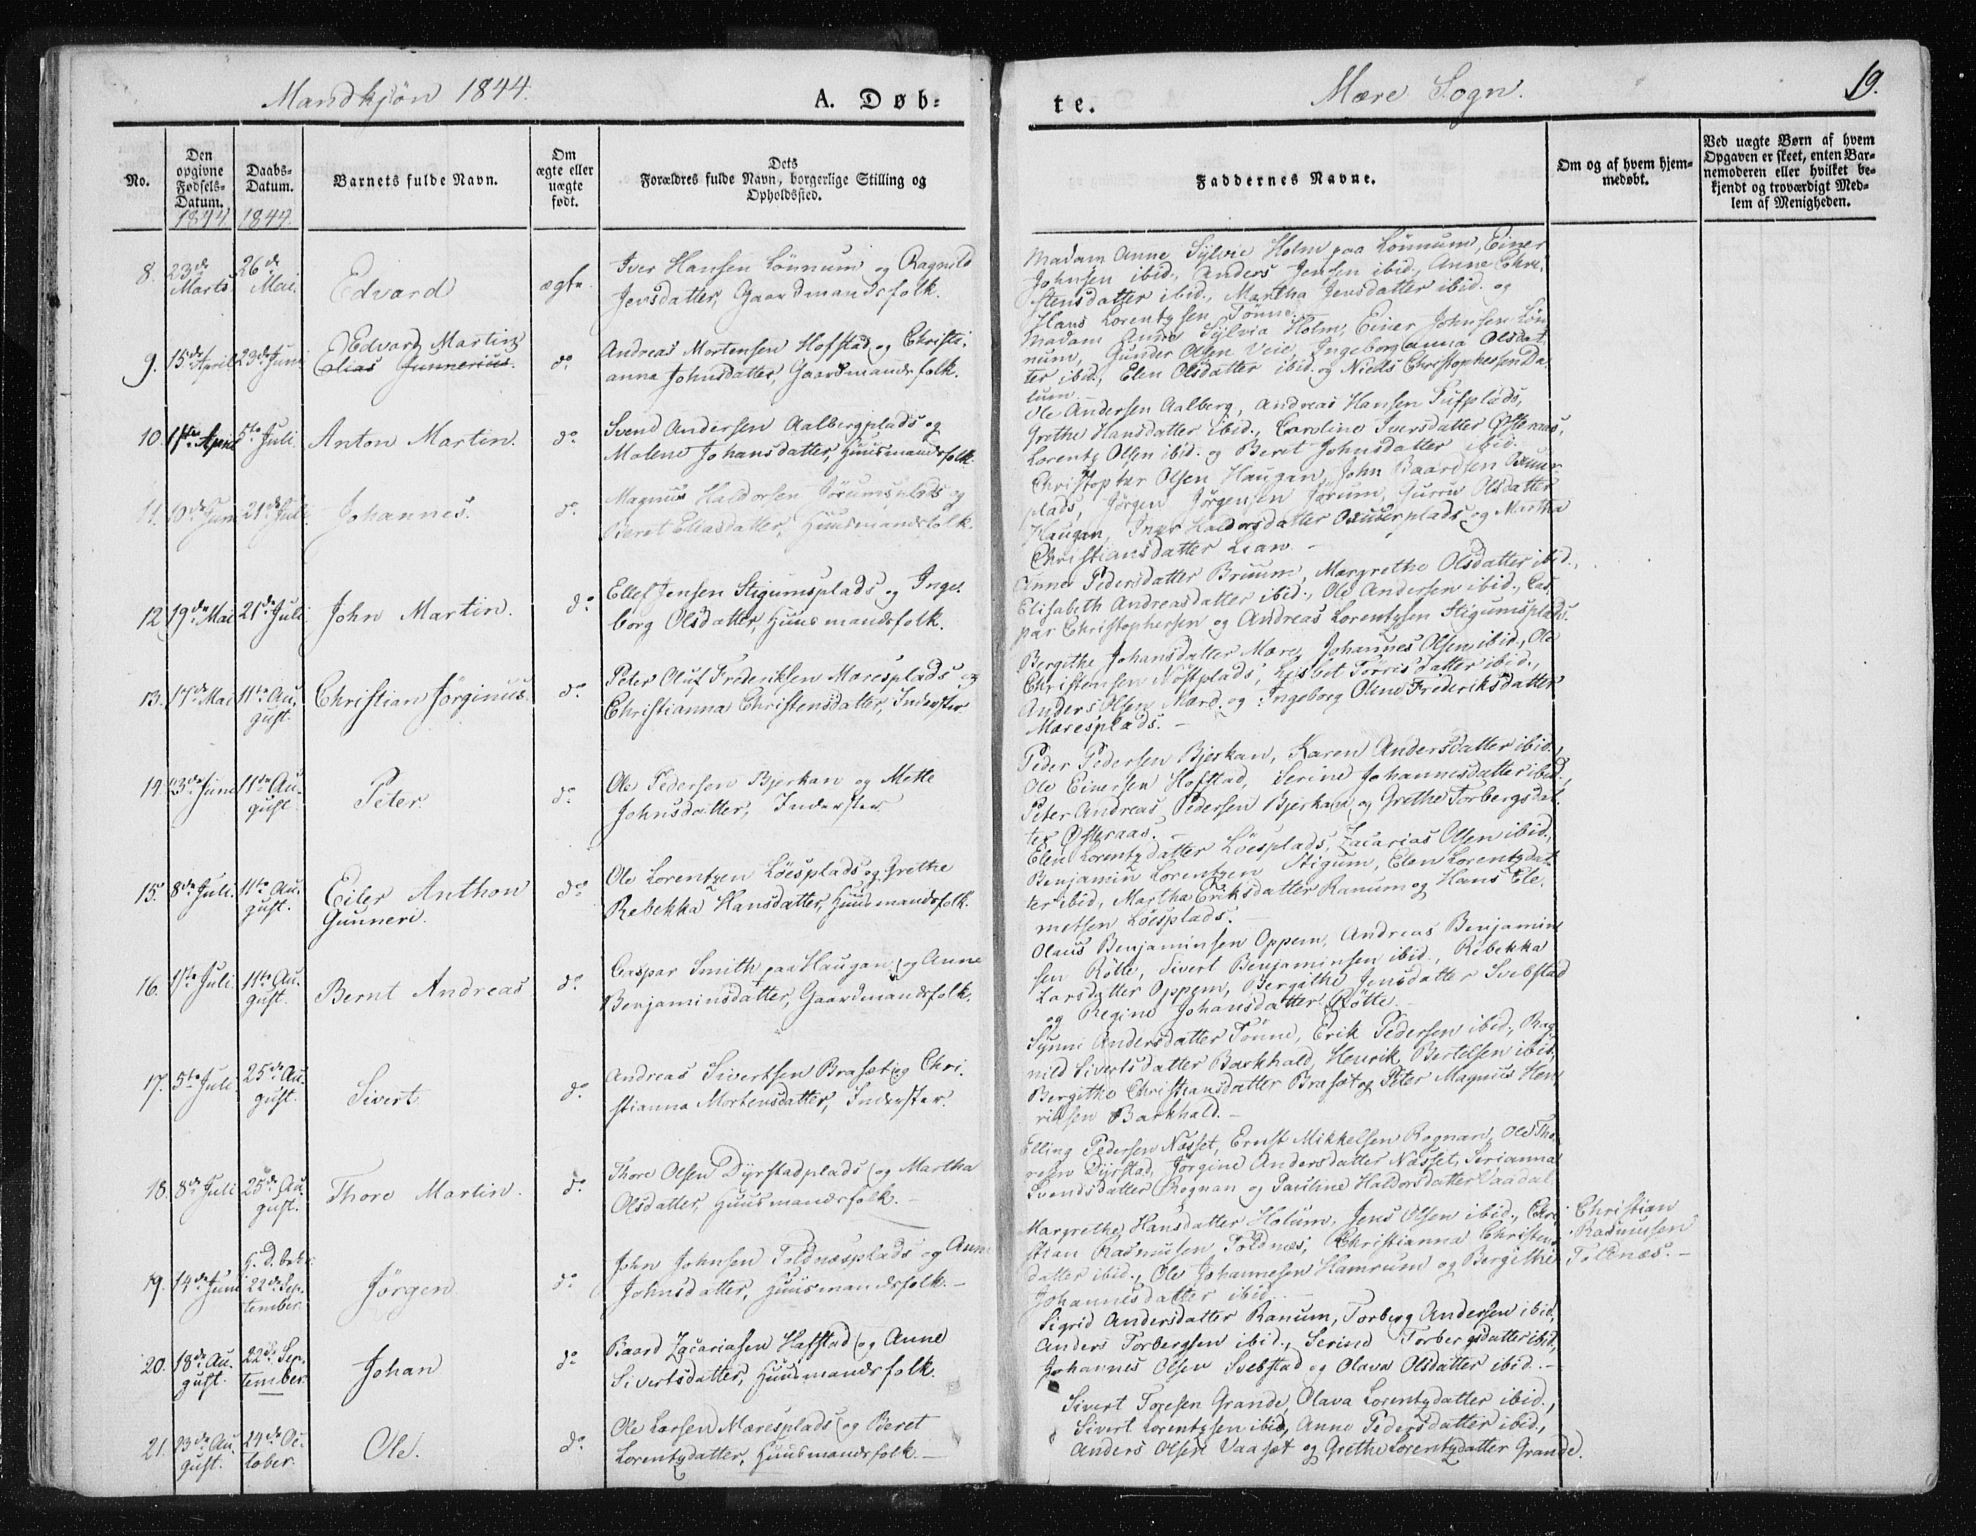 Mandkjøn 1844.
A. Døb-
te.
Mære Sogn.
19.
No.
Den opgivne Fødsels-Datum.
1844
Daabs-Datum.
1844.
Barnets fulde Navn.
Om ægte eller uægte født.
Dets Forældres fulde Navn, borgerlige Stilling og Opholdssted.
Faddernes Navne.
Om og af hvem hjem-medøbt.
Ved uægte Børn af hvem Opgaven er skeet, enten Bar-nemoderen eller hvilket be-kjendt og troværdigt Med-lem af Menigheden.
8. 23de Marts 26de Mai. Edvard ægte.
Iver Hansen Lønnum og Ragnild
Jensdatter, Gaardmandsfolk.
Madam Anne Sylvie Holm paa Lønnum, Einer
Johnsen ibid., Anders Jensen ibid., Anne Chri-
stensdatter ibid., Martha Jensdatter ibid. og
Hans Lorentzsen Tønne.
9. 15de April 23de Juni Edvard Martin
Elias Gunnerius. do
Andreas Mortensen Hofstad og Christi-
anna Johnsdatter, Gaardmandsfolk.
Madam Anne Sylvia Holm, Einer Johnsen Løn-
num, Gunder Olsen Veie, Ingeboranna Olsdat-
ter ibid., Elen Olsdatter ibid. og Niels Christophersen Da-
lum.
10. April 5te Juli Anton Martin. do
Svend Andersen Aalbergplads og
Malene Johansdatter, Huusmandsfolk.
Ole Andersen Aalberg, Andreas Hansen
Grethe Hansdatter ibid., Caroline Iversdatter Østeraas,
Lorentz Olsen ibid. og Beret Johnsdatter ibid.
11. 10de Juni 21de Juli Johannes. do
Magnus Haldorsen Jørumsplads og
Beret Eliasdatter, Huusmandsfolk.
Christopher Olsen Haugan, John Baardsen
plads, Jørgen Jørgensen Jørum, Gurru Olsdatter
Haugan, Inger Haldorsdatter og Martha
Christiansdatter Lian.
12. 19de Mai 21de Juli John Martin. do
Ellef Jensen Stigumsplads og Inge-
borg Olsdatter, Huusmandsfolk.
Anne Pedersdatter Bruum, Margrethe Olsdatter ibid.,
Elisabeth Andreasdatter ibid., Ole Andersen ibid., Cas-
par Christophersen og Andreas Lorentzsen Stigumsplads.
13. 17de Mai 11te Au-
gust. Christian Jørginus. do
Peter Oluf Frederiksen Mæresplads og
Christianna Christensdatter, Inderster
Bergithe Johansdatter Mære, Johannes Olsen ibid., Ole
Christensen Nøstplads, Lisbet Torrisdatter ibid.,
Anders Olsen Mære og Ingeborg Oline Frederiksdatter
Mæresplads.
14. 3de Juni 11te Au-
gust. Peter do
Ole Pedersen Bjerkan og Mette
Johnsdatter, Inderster
Peder Pedersen Bjerkan, Karen Andersdatter ibid.,
Ole Einersen Hofstad, Serine Johannesdatter ibid.,
Peter Andreas Pedersen Bjerkan og Grethe Torbergsdat-
ter Østeraas.
15. 8de Juli. 11te Au-
gust. Eiler Anthon
Gunneri. do
Ole Lorentzen Løesplads og Grethe
Rebekka Hansdatter, Huusmandsfolk.
Elen Lorentzdatter Løesplads, Zacarias Olsen ibid.,
Benjamin Lorentzen Stigum, Elen Lorentzdat-
ter ibid., Martha Eriksdatter Ranum og Hans Cle-
metsen Løesplads.
16. Juli. 11te Au-
gust. Bernt Andreas do
Caspar Smith paa Haugan og Anne
Benjaminsdatter, Gaardmandsfolk.
Olaus Benjaminsen Oppem, Andreas Benjamin-
sen Røtte, Sivert Benjaminsen ibid., Rebekka
Larsdatter Oppem, Bergithe Jensdatter Svebstad
og Regine Johansdatter Røtte.
17. 5te Juli. 25de Au-
gust. Sivert do
Andreas Sivertsen Braset og Chri-
stianna Mortensdatter, Inderster.
Synne Andersdatter Tønne, Erik Pedersen ibid., Rag-
nild Sivertsdatter Barkhald, Henrik Bertelsen ibid.,
Bergitha Christiansdatter Braset og Peter Magnus Hen-
riksen Barkhald.
18. 8de Juli 25de Au-
gust. Thore Martin. do
Thore Olsen Dyrstadplads og Martha
Olsdatter, Huusmandsfolk.
Elling Pedersen Næsset, Ernst Mikkelsen Rognan, Ole Tho-
resen Dyrstad, Jørgine Andersdatter Næsset, Serianna
Svendsdatter Rognan og Pauline Haldorsdatter Vaadal.
19. 14de Juni 22de Sep-
tember. Jørgen do
John Johnsen Toldnæsplads og Anne
Johnsdatter, Huusmandsfolk.
Margrethe Hansdatter Holum, Jens Olsen ibid., Chri-
stian Rasmussen Toldnæs, Christianna Christens-
datter ibid., Ole Johannesen Hamrum og Bergithe
Johannesdatter ibid.
Christian
Rasmussen
Toldnæs.
20. 18de Au-
gust. 22de Sep-
tember Johan do
Baard Zacariasen Hafstad og Anne
Sivertsdatter, Huusmandsfolk.
Sigrid Andersdatter Ranum, Torberg Andersen ibid.,
Anders Torbergsen ibid., Serine Torbergsdatter ibid.,
Johannes Olsen Svebstad og Olava Olsdatter ibid.
21. 23de Au-
gust. 24de Oc-
tober. Ole. do
Ole Larsen Mæresplads og Beret
Lorentzdatter, Huusmandsfolk.
Sivert Toresen Grande, Olava Lorentzdatter ibid.,
Sivert Lorentzsen ibid., Anne Pedersdatter ibid.,
Anders Olsen Vaaset og Grethe Lorentzdatter Grande.